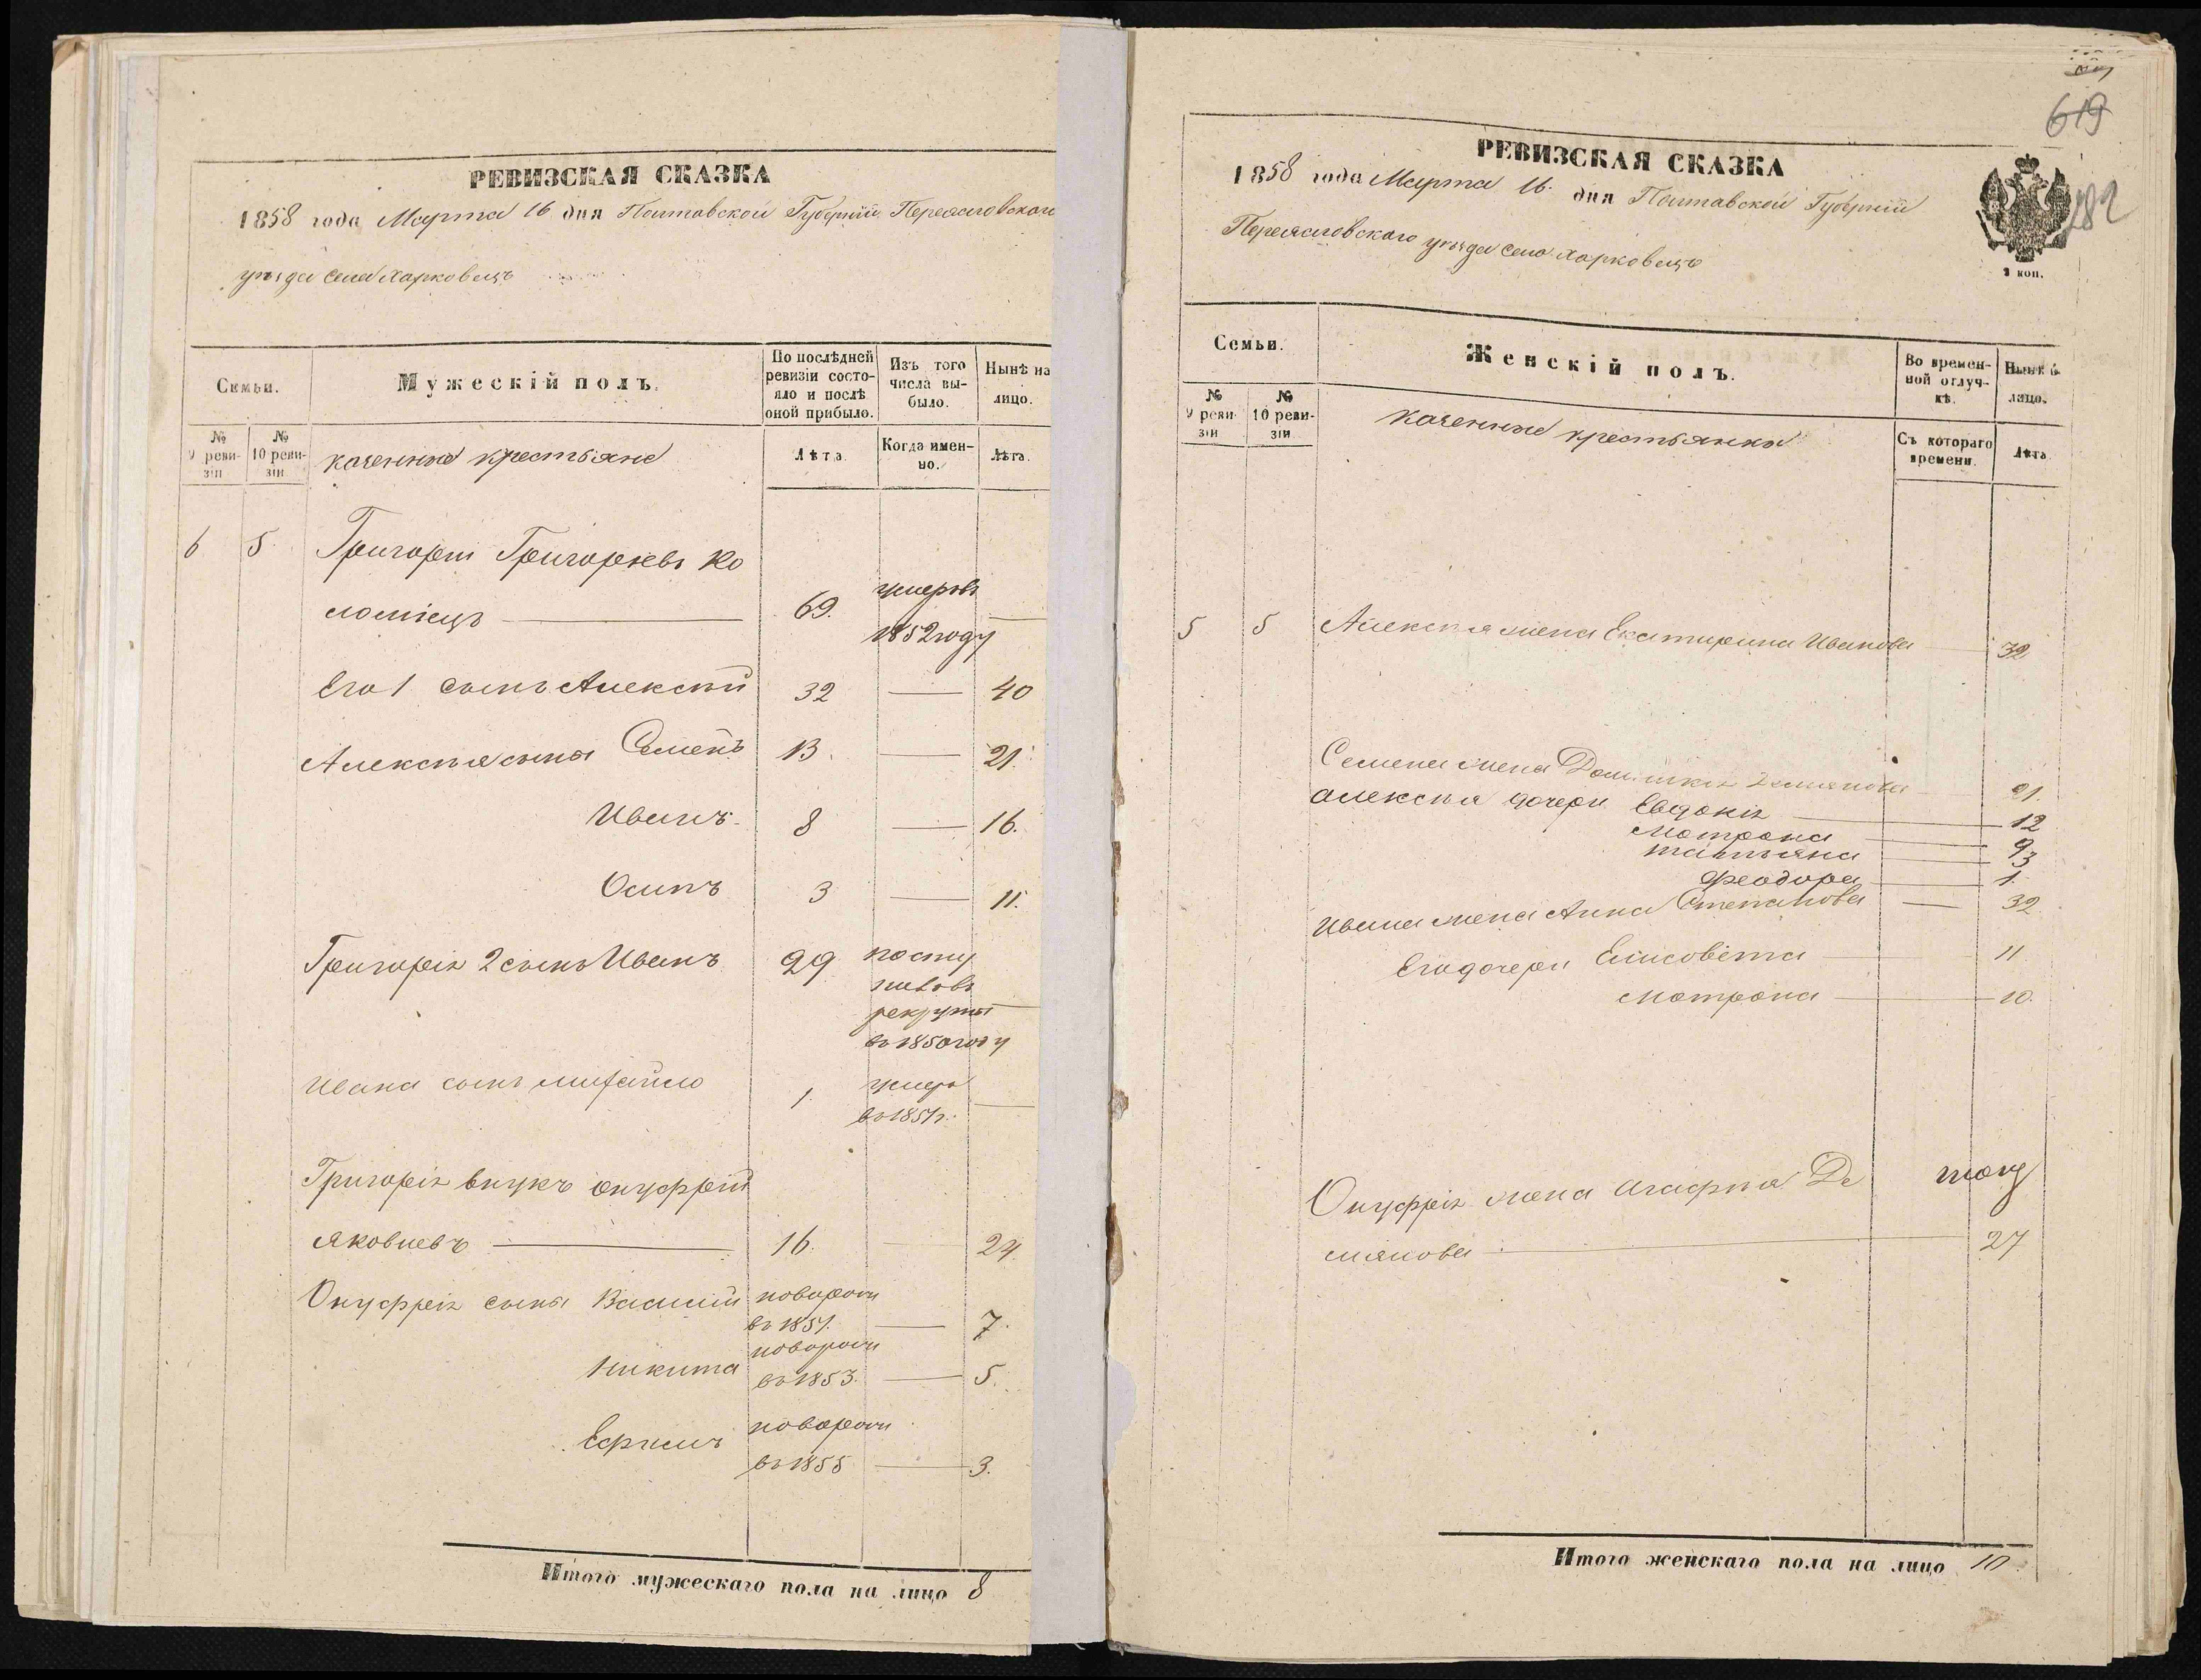 РЕВИЗСКАЯ СКАЗКА
1858 года Марта 16 дня Полтавской Губерніи Переяславского
уѣзда села Харковецъ
Семьи.
Мужескій полъ.
По послѣдней ревизіи состояло и послѣ оной прибыло.
Изъ того числа выбыло.
Нынѣ на лицо.
№ 9 ревизіи
№ 10 ревизіи
казенные крестьяне
Лѣта.
Когда именно.
Лѣта.
6 5 Григорій Григорьевъ Ко
ломіецъ 69. умеръ въ
1852 году
Его 1 сынъ Алексѣй 32 40
Алексѣя сыны Семенъ 13. 21.
Иванъ. 8 16.
Осипъ 3 11.
Григорія 2 сынъ Иванъ 29 посту
пивъ въ
рекруты
въ 1850 году
Ивана сынъ Михайло 1. умеръ
въ 1851 г.
Григорія внукъ Онуфрій
Яковлевъ 16. 24.
Онуфрія сыны Василій новорожд
въ 1851. 7.
Никита новорожд
въ 1853. 5.
Ефимъ новорожд
въ 1855 3.
Итого мужескаго пола на лицо 8
619
282
РЕВИЗСКАЯ СКАЗКА
1858 года Марта 16. дня Полтавской Губерніи
Переяславского уѣзда села Харковецъ
Семьи.
Женскій полъ.
Во временной отлучкѣ.
Нынѣ на лицо.
№ 9 ревизіи
№ 10 ревизіи
казенные крестьянки
Съ котораго времени.
Лѣта
5 5 Алексѣя жена Екатирина Иванова 32
Семена жена Домникія Демянова 21.
Алексѣя дочери Евдокія 12
Мотрона 9
Татьяна 3
Феодора 1.
Ивана жена Анна Степанова 32
Его дочери Елисовета 11
Мотрона 10.
Онуфрія жена Агафія Де
мянова 27
Итого женскаго пола на лицо 10.